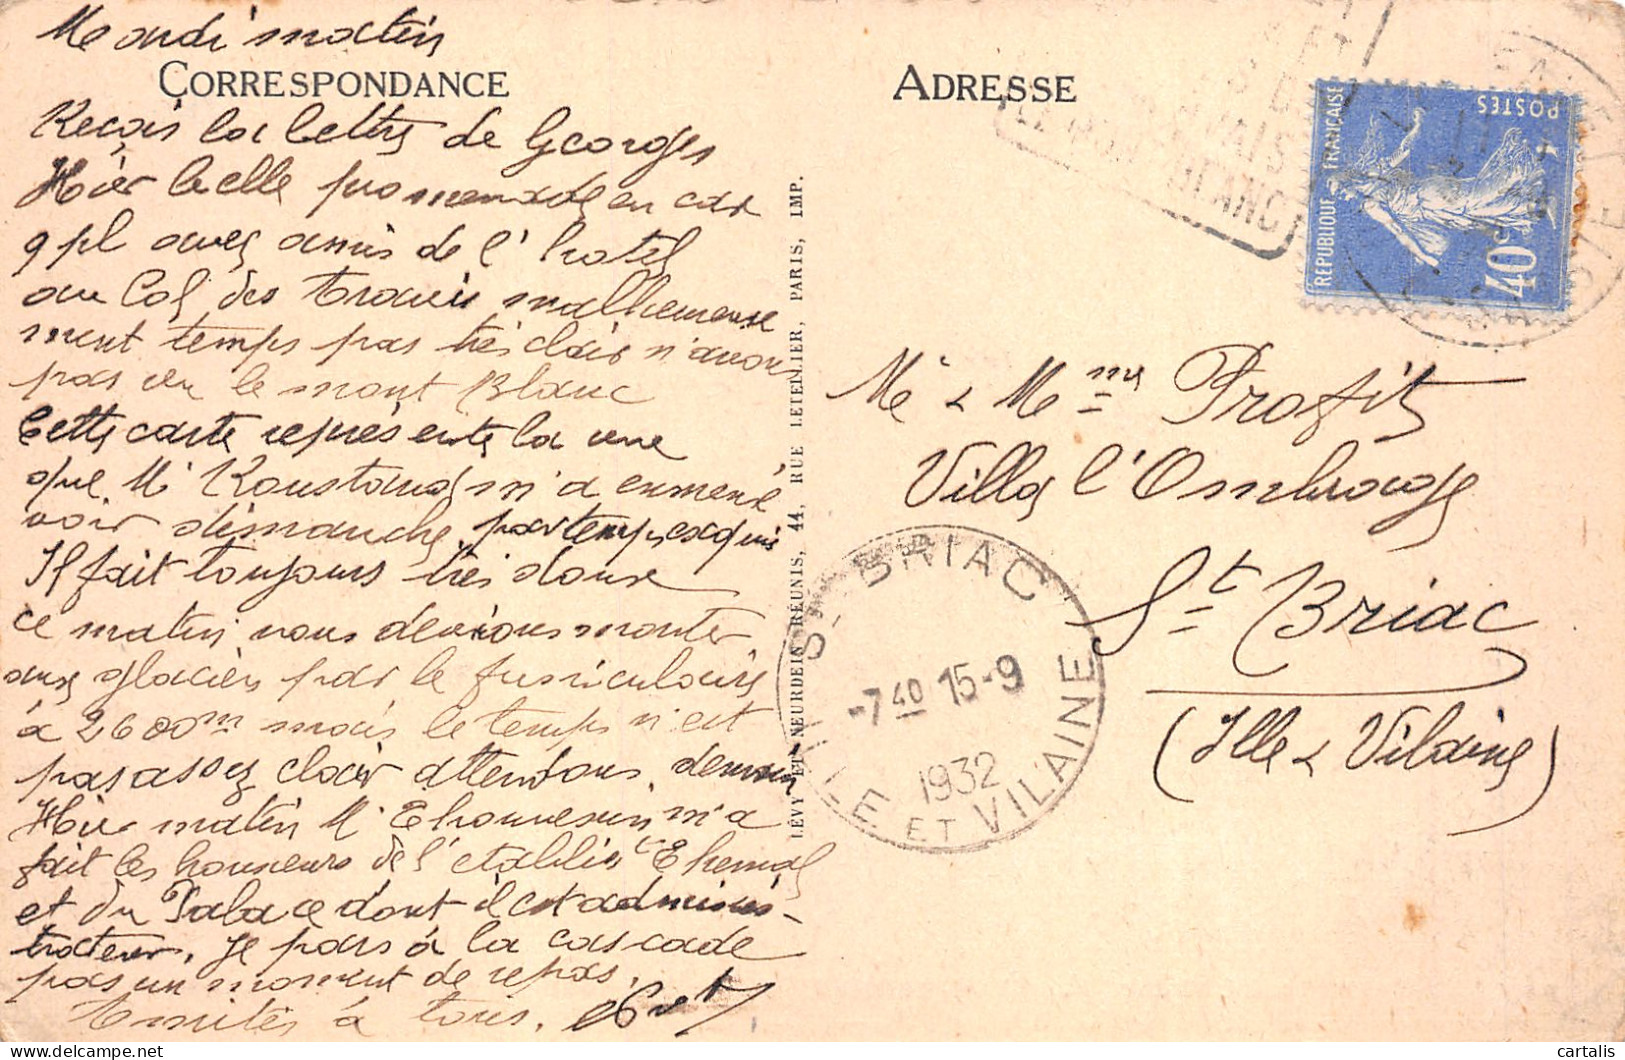 Mardi matin
CORRESPONDANCE
Reçois la lettre de Georges
Hier belle promenade en car
9 pl avec amis de l'hotel
au Col des Aravis malheureuse
ment temps pas très clair n'avons
pas vu le mont Blanc
Cette carte représente la vue
que Mr m'a emmené
voir dimanche, par temps exquis
Il fait toujours très doux
ce matin nous devions monter
aux glaciers par le funiculaire
à 2600m mais le temps n'est
pas assez clair attendons demain
Hier matin Mr m'a
fait les honneurs de l'établist thermal
et du Palace dont il est adminis-
trateur. Je pars à la cascade
pas un moment de repos.
Amitiés à tous.
LEVY ET NEURDEIN RÉUNIS, 44, RUE LETELLIER, PARIS, IMP.
ADRESSE
MONT BLANC
RÉPUBLIQUE FRANÇAISE
POSTES
40c
Mr & Mme Profit
Villa l'Ombrage
St Briac
(Ille & Vilaine)
ST BRIAC
-7 40 15-9
1932
ILLE ET VILAINE
cartalis